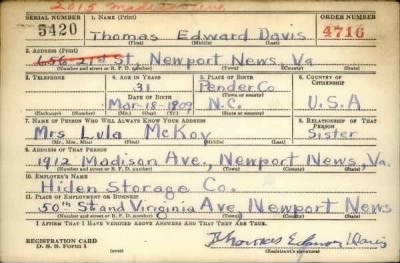 2015 Madison Ave.
SERIAL NUMBER 1. NAME (Print) ORDER NUMBER
5420 Thomas Edward Davis 4716
(First) (Middle) (Last)
2. ADDRESS (Print)
656-21st St, Newport News, Va
(Number and street or R. F. D. number) (Town) (County) (State)
3. TELEPHONE 4. AGE IN YEARS 5. PLACE OF BIRTH 6. COUNTRY OF CITIZENSHIP
31 Pender Co
DATE OF BIRTH (Town or county)
Mar-18-1909 N.C. U.S.A
(Exchange) (Number) (Mo.) (Day) (Yr.) (State or country)
7. NAME OF PERSON WHO WILL ALWAYS KNOW YOUR ADDRESS 8. RELATIONSHIP OF THAT PERSON
Mrs Lula McKoy Sister
(Mr., Mrs., Miss) (First) (Middle) (Last)
9. ADDRESS OF THAT PERSON
1912 Madison Ave., Newport News, Va.
(Number and street or R. F. D. number) (Town) (County) (State)
10. EMPLOYER'S NAME
Hiden Storage Co.
11. PLACE OF EMPLOYMENT OR BUSINESS
50th St and Virginia Ave Newport News
(Number and street or R. F. D. number) (Town) (County) (State)
I AFFIRM THAT I HAVE VERIFIED ABOVE ANSWERS AND THAT THEY ARE TRUE.
REGISTRATION CARD
D. S. S. Form 1 Thomas Edward Davis
(Registrant's signature)